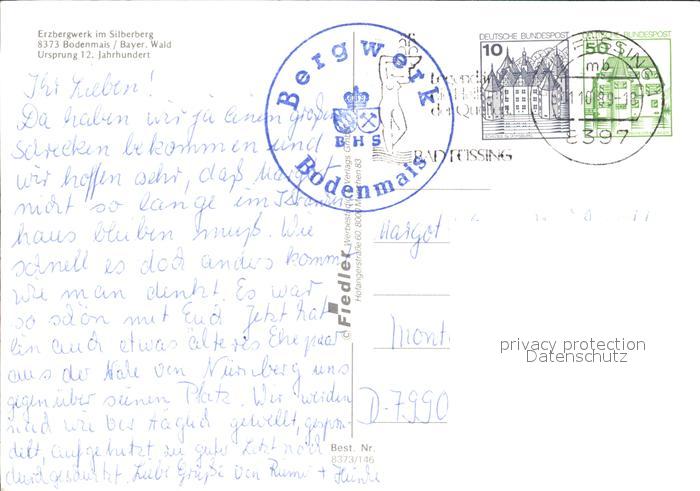 Erzbergwerk im Silberberg
8373 Bodenmais / Bayer. Wald
Ursprung 12. Jahrhundert
Ihr Lieben!
Da haben wir ja einen großen
Schrecken bekommen und
wir hoffen sehr, daß Margot
nicht so lange im Kranken
haus bleiben muß. Wie
schnell es doch anders kommt
wie man denkt. Es war
so schön mit Euch. Jetzt hat
ein auch etwas älteres Ehepaar
aus der Nähe von Nürnberg uns
gegenüber seinen Platz. Wir werden
sind wie bei
delt, aufgeheizt zu guter Letzt noch
Liebe Grüße von + Heinke
Bergwerk
BHS
Bodenmais
DEUTSCHE BUNDESPOST
10
BUNDESPOST
50
mb
8397
BAD FÜSSING
Fiedler
Hofangerstraße 60 8000 München 83
Margot
Mont
D-7990
privacy protection
Datenschutz
Best. Nr.
8373/146